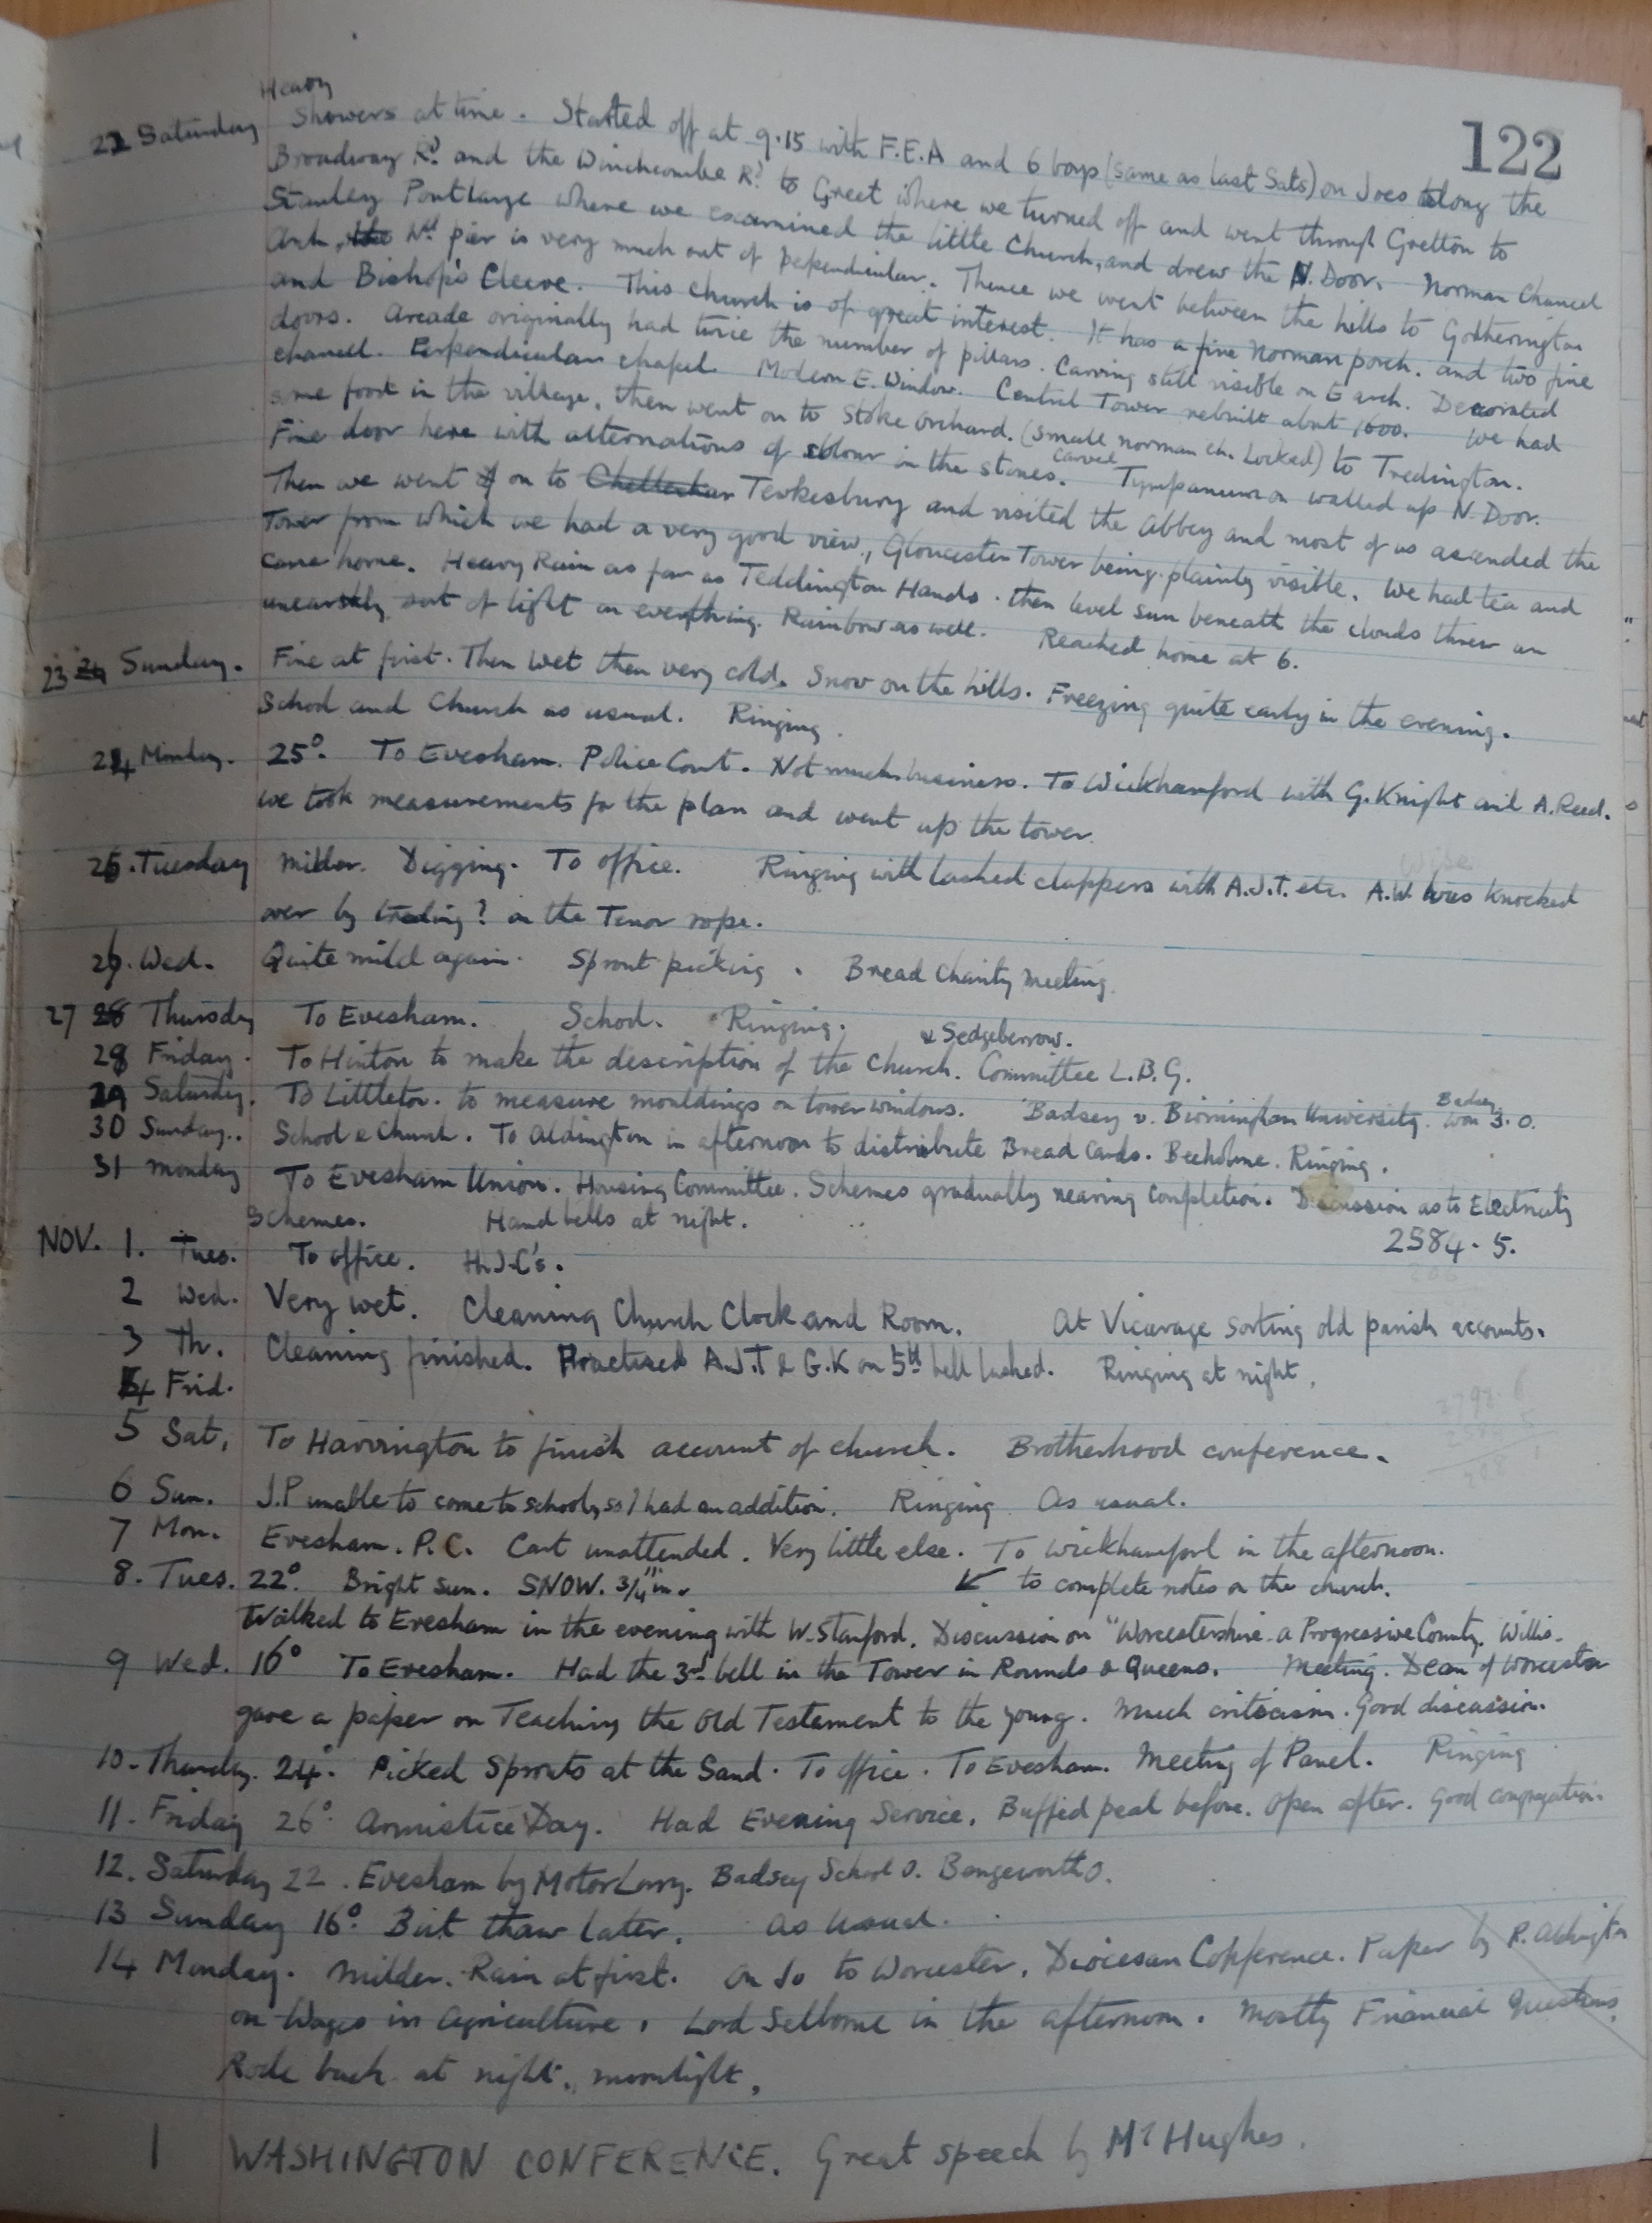 122
Heavy
22 Saturday Showers at time. Started off at 9.15 with F.E.A and 6 boys (same as last Sats) on Joes along the
Broadway Rd. and the Winchcombe Rd. to Greet where we turned off and went through Gretton to
Stanley Pontlarge where we examined the little Church, and drew the N. Door. Norman Chancel
Arch, the Nd pier is very much out of perpendicular. Thence we went between the hills to Gotherington
and Bishop's Cleeve. This church is of great interest. It has a fine Norman porch. and two fine
doors. Arcade originally had twice the number of pillars. Carving still visible on E arch. Decorated
chancel. Perpendicular chapel. Modern E. Window. Central Tower rebuilt abut 1600. We had
some food in the village, then went on to Stoke Orchard. (Small norman ch. Locked) to Tredington.
Fine door here with alternations of colour in the stones. carved Tympaneum on walled up N. Door.
Then we went on to Cheltenham Tewkesbury and visited the Abbey and most of us ascended the
Tower from which we had a very good view, Gloucester Tower being plainly visible. We had tea and
came home. Heavy Rain as far as Teddington Hands. then level sun beneath the clouds threw an
unearthly sort of light on everything. Rainbow as well. Reached home at 6.
23 24 Sunday. Fine at first. Then Wet then very cold. Snow on the hills. Freezing quite early in the evening.
School and Church as usual. Ringing.
24 Monday. 25°. To Evesham. Police Court. Not much business. To Wickhamford with G. Knight and A. Reed.
We took measurements for the plan and went up the tower.
25. Tuesday Milder. Digging. To office. Ringing with lashed clappers with A.J.T. etc. A.W. was knocked
Wise
over by treading? on the Tenor rope.
26. Wed. Quite mild again. Sprout picking. Bread Charity Meeting.
27 28 Thursday To Evesham. School. Ringing.
& Sedgeberrow.
28 Friday. To Hinton to make the description of the Church. Committee L.B.G.
29 Saturday. To Littleton. to measure mouldings on tower windows. Badsey v. Birmingham University. Badsey won 3.0.
30 Sunday.. School & Church. To Aldington in afternoon to distribute Bread Cards. Beeholme. Ringing.
31 Monday To Evesham Union. Housing Committee. Schemes gradually nearing Completion. Discussion as to Electricity
Schemes. Hand bells at night.
2584.5.
NOV. 1. Tues. To office. H.J.C's.
2 Wed. Very wet. Cleaning Church Clock and Room. At Vicarage sorting old parish accounts.
3 Th. Cleaning finished. Practised A.J.T & G.K on 5th bell lashed. Ringing at night.
4 Frid.
5 Sat. To Harvington to finish account of church. Brotherhood conference.
6 Sun. J.P unable to come to school, so I had an addition. Ringing As usual.
7 Mon. Evesham. P.C. Cart unattended. Very little else. To Wickhamford in the afternoon.
8. Tues. 22°. Bright sun. SNOW. 3/4" in. ↙ to complete notes on the church.
Walked to Evesham in the evening with W. Stanford. Discussion on "Worcestershire a Progressive County. Willis.
9 Wed. 16° To Evesham. Had the 3rd bell in the Tower in Rounds & Queens. Meeting. Dean of Worcester
gave a paper on Teaching the Old Testament to the young. Much criticism. Good discussion.
10. Thursday. 24°. Picked Sprouts at the Sand. To office. To Evesham. Meeting of Panel. Ringing
11. Friday 26°. Armistice Day. Had Evening Service. Buffed peal before. Open after. Good congregation.
12. Saturday 22. Evesham by Motor Lorry. Badsey School 0. Bengeworth 0.
13 Sunday 16°. But thaw later. As Usual.
14 Monday. Milder. Rain at first. On Jo to Worcester. Diocesan Conference. Paper by R. Aldington
on Wages in Agriculture. Lord Selborne in the afternoon. Mostly Financial Questions.
Rode back at night. moonlight.
1 WASHINGTON CONFERENCE. Great speech by Mr Hughes.